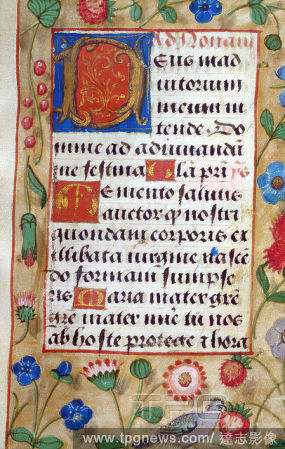 Ad Nonam
Deus in ad
iutorium
meum in
tende Do
mine ad adiuuandū
me festina Gl̄a pr̄i
Memento salutis
auctor qȝ nostri
quondam corporis ex
illibata uirgine nasce
do formam sumpse
ris Maria mater grē
grē mater mīe tu nos
ab hoste protege & hora
www.tpgnews.com / 達志影像